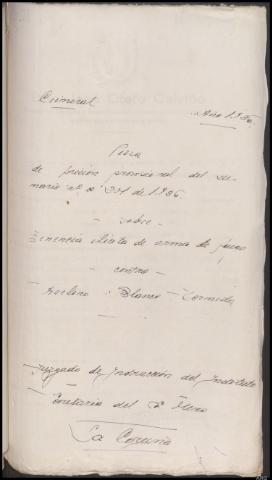 Criminal
Año 1936.
Pieza
de prisión provisional del su-
mario nº 231 de 1936.
- sobre -
Tenencia ilícita de arma de fuego
- contra -
- Blanco -
Juzgado de Instrucción del Instituto
Secretaría del Sr Otero
La Coruña